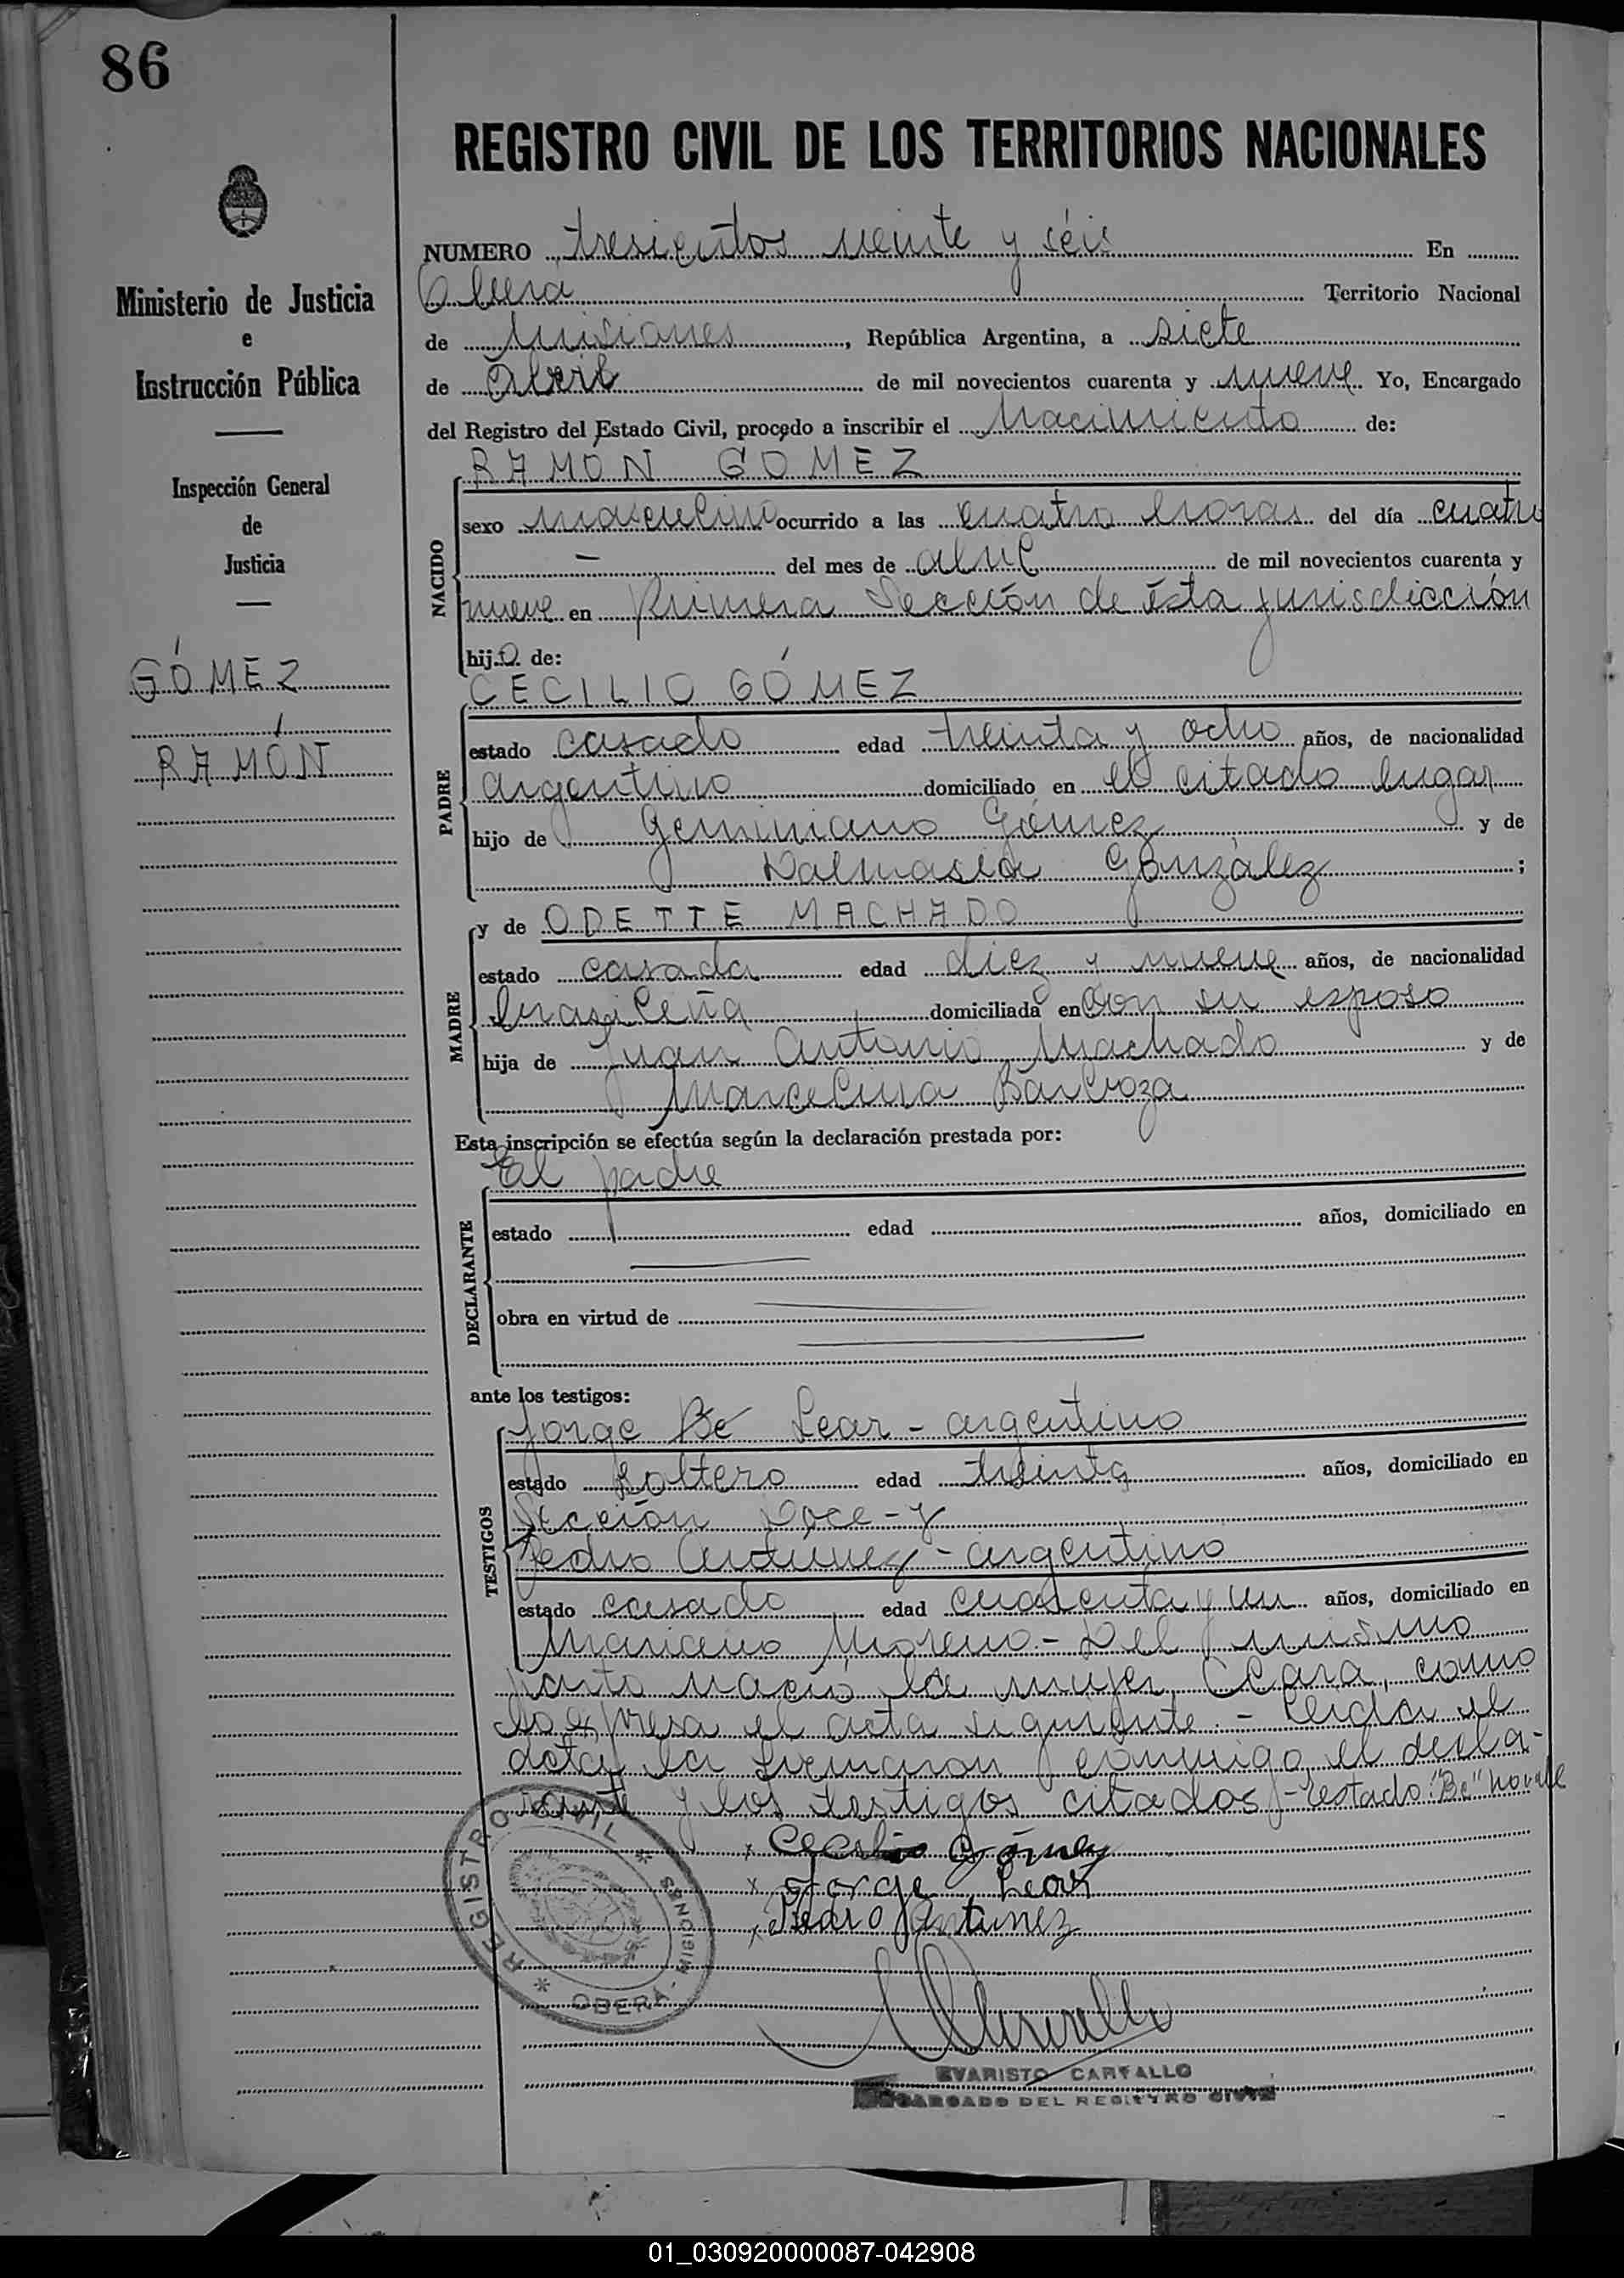 86
REGISTRO CIVIL DE LOS TERRITORIOS NACIONALES
Ministerio de Justicia
e
Instrucción Pública
Inspección General
de
Justicia
GÓMEZ
RAMÓN
NUMERO tresientos veinte y séis En
Oberá Territorio Nacional
de Misiones, República Argentina, a siete
de Abril de mil novecientos cuarenta y nueve Yo, Encargado
del Registro del Estado Civil, procedo a inscribir el Nacimiento de:
NACIDO
RAMON GOMEZ
sexo masculino ocurrido a las cuatro horas del día cuatro
— del mes de abril de mil novecientos cuarenta y
nueve en Primera Sección de ésta jurisdicción
hijo de:
PADRE
CECILIO GÓMEZ
estado casado edad treinta y ocho años, de nacionalidad
argentino domiciliado en el citado lugar
hijo de Geminiano Gómez y de
Dalmasia González ;
MADRE
y de ODETTE MACHADO
estado casada edad diez y nueve años, de nacionalidad
brasileña domiciliada en con su esposo
hija de Juan Antonio Machado y de
Marcelina Barboza
Esta inscripción se efectúa según la declaración prestada por:
DECLARANTE
El padre
estado edad años, domiciliado en
obra en virtud de
ante los testigos:
TESTIGOS
Jorge Be Lear - argentino
estado soltero edad treinta años, domiciliado en
Sección Doce - y
Pedro Antunez - argentino
estado casado edad cuarenta y un años, domiciliado en
Mariano Moreno.- Del mismo
parto nació la mujer Clara, como
lo expresa el acta siguiente.- Leida el
acta, la firmaron conmigo, el decla-
rante y los testigos citados - testado: "Be" no vale
x Cecilio Gómez
x Jorge Lear
x Pedro Antunez
REGISTRO CIVIL * OBERA - MISIONES *
EVARISTO CARVALLO
ENCARGADO DEL REGISTRO CIVIL
01_030920000087-042908